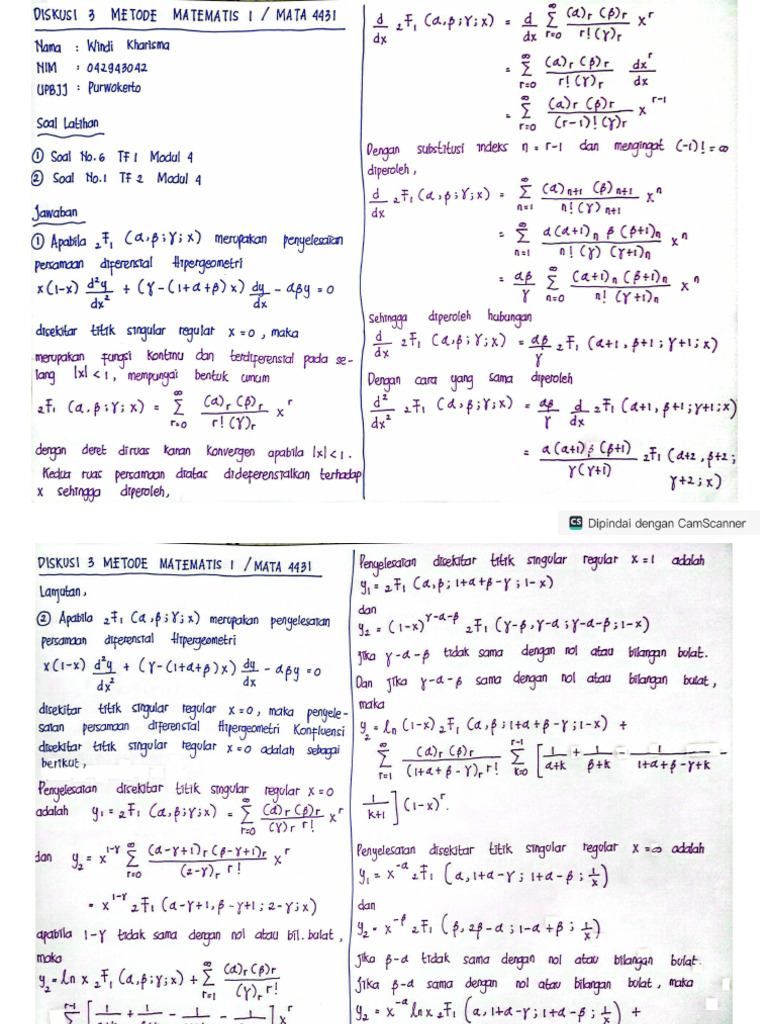 DISKUSI 3 METODE MATEMATIS 1 / MATA 4431
Nama : Windi Kharisma
NIM : 042943042
UPBJJ : Purwokerto
Soal Latihan
① Soal No.6 TF 1 Modul 4
② Soal No.1 TF 2 Modul 4
Jawaban
① Apabila ₂F₁ (α,β;γ;x) merupakan penyelesaian
persamaan diferensial Hipergeometri
x(1-x) d²y/dx² + (γ-(1+α+β)x) dy/dx - αβy = 0
disekitar titik singular regular x=0, maka
merupakan fungsi kontinu dan terdiferensial pada se-
lang |x|<1, mempunyai bentuk umum
₂F₁ (α,β;γ;x) = ∑_{r=0}^{∞} (α)_r (β)_r / r!(γ)_r x^r
dengan deret diruas kanan konvergen apabila |x|<1.
Kedua ruas persamaan diatas dideferensialkan terhadap
x sehingga diperoleh,
d/dx ₂F₁ (α,β;γ;x) = d/dx ∑_{r=0}^{∞} (α)_r (β)_r / r!(γ)_r x^r
= ∑_{r=0}^{∞} (α)_r (β)_r / r!(γ)_r dx^r/dx
= ∑_{r=0}^{∞} (α)_r (β)_r / (r-1)!(γ)_r x^{r-1}
Dengan substitusi indeks n = r-1 dan mengingat (-1)! = ∞
diperoleh,
d/dx ₂F₁ (α,β;γ;x) = ∑_{n=1}^{∞} (α)_{n+1} (β)_{n+1} / n!(γ)_{n+1} x^n
= ∑_{n=1}^{∞} α(α+1)_n β(β+1)_n / n!(γ)(γ+1)_n x^n
= αβ/γ ∑_{n=0}^{∞} (α+1)_n (β+1)_n / n!(γ+1)_n x^n
Sehingga diperoleh hubungan
d/dx ₂F₁ (α,β;γ;x) = αβ/γ ₂F₁ (α+1, β+1; γ+1; x)
Dengan cara yang sama diperoleh
d²/dx² ₂F₁ (α,β;γ;x) = αβ/γ d/dx ₂F₁ (α+1, β+1; γ+1; x)
= α(α+1) β (β+1) / γ(γ+1) ₂F₁ (α+2, β+2;
γ+2; x)
CS Dipindai dengan CamScanner
DISKUSI 3 METODE MATEMATIS 1 / MATA 4431
Lanjutan,
② Apabila ₂F₁ (α,β;γ;x) merupakan penyelesaian
persamaan diferensial Hipergeometri
x(1-x) d²y/dx² + (γ-(1+α+β)x) dy/dx - αβy = 0
disekitar titik singular regular x=0, maka penyele-
saian persamaan diferensial Hipergeometri Konfluensi
disekitar titik singular regular x=0 adalah sebagai
berikut,
Penyelesaian disekitar titik singular regular x=0
adalah y₁ = ₂F₁ (α,β;γ;x) = ∑_{r=0}^{∞} (α)_r (β)_r / (γ)_r r! x^r
dan y₂ = x^{1-γ} ∑_{r=0}^{∞} (α-γ+1)_r (β-γ+1)_r / (2-γ)_r r! x^r
= x^{1-γ} ₂F₁ (α-γ+1, β-γ+1; 2-γ; x)
apabila 1-γ tidak sama dengan nol atau bil. bulat,
maka
y₂ = ln x ₂F₁ (α,β;γ;x) + ∑_{r=1}^{∞} (α)_r (β)_r / (γ)_r r!
Penyelesaian disekitar titik singular regular x=1 adalah
y₁ = ₂F₁ (α,β; 1+α+β-γ; 1-x)
dan
y₂ = (1-x)^{γ-α-β} ₂F₁ (γ-β, γ-α; γ-α-β; 1-x)
Jika γ-α-β tidak sama dengan nol atau bilangan bulat.
Dan jika γ-α-β sama dengan nol atau bilangan bulat,
maka
y₂ = ln (1-x) ₂F₁ (α,β; 1+α+β-γ; 1-x) +
∑_{r=1}^{∞} (α)_r (β)_r / (1+α+β-γ)_r r! ∑_{k=0}^{r-1} [1/α+k + 1/β+k - 1/1+α+β-γ+k -
1/k+1] (1-x)^r.
Penyelesaian disekitar titik singular regular x=∞ adalah
y₁ = x^{-α} ₂F₁ (α, 1+α-γ; 1+α-β; 1/x)
dan
y₂ = x^{-β} ₂F₁ (β, 2β-α; 1-α+β; 1/x)
Jika β-α tidak sama dengan nol atau bilangan bulat.
Jika β-α sama dengan nol atau bilangan bulat, maka
y₂ = x^{-α} ln x ₂F₁ (α, 1+α-γ; 1+α-β; 1/x) +